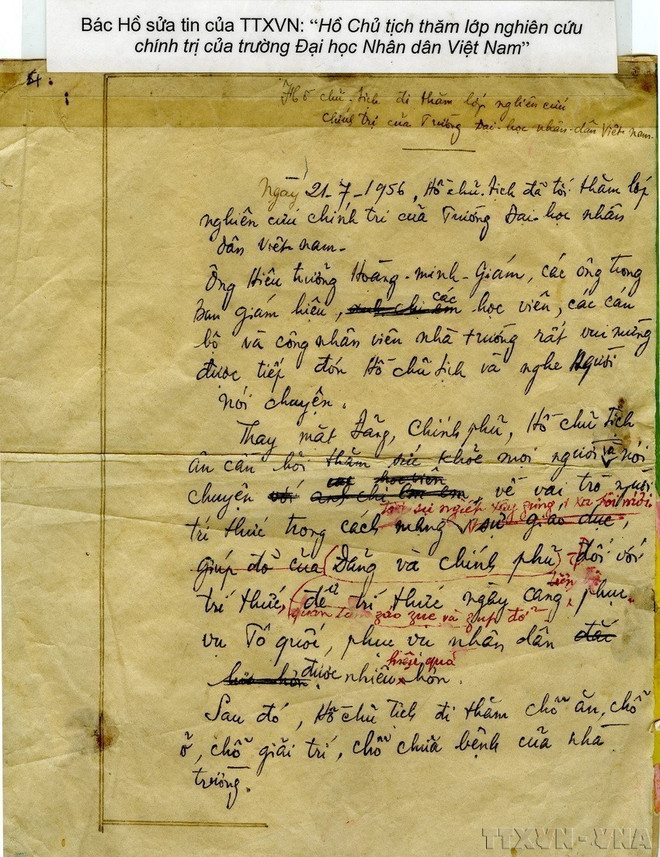 Bác Hồ sửa tin của TTXVN: “Hồ Chủ tịch thăm lớp nghiên cứu
chính trị của trường Đại học Nhân dân Việt Nam”
Hồ chủ-tịch đi thăm lớp nghiên cứu
chính trị của Trường Đại-học nhân-dân Việt-nam.
Ngày 21-7-1956, Hồ chủ-tịch đã tới thăm lớp
nghiên cứu chính trị của Trường Đại-học nhân
dân Việt-nam.
Ông Hiệu trưởng Hoàng-minh-Giám, các ông trong
ban giám hiệu, anh chị em các học viên, các cán
bộ và công nhân viên nhà trường rất vui mừng
được tiếp đón Hồ chủ tịch và nghe Người
nói chuyện.
Thay mặt Đảng, Chính phủ, Hồ chủ tịch
ân cần hỏi thăm sức khỏe mọi người và nói
các học viên
chuyện với anh chị em về vai trò người
sự nghiệp xây dựng xã hội mới
trí thức trong cách mạng, sự giáo dục,
giúp đỡ của Đảng và chính phủ đối với
tiến
trí thức, để trí thức ngày càng phục
quan tâm záo zục và zúp đỡ
vụ Tổ quốc, phục vụ nhân dân đắc
hiệu quả
lực hơn được nhiều hơn.
Sau đó, Hồ chủ tịch đi thăm chỗ ăn, chỗ
ở, chỗ giải trí, chỗ chữa bệnh của nhà
trường.
TTXVN-VNA